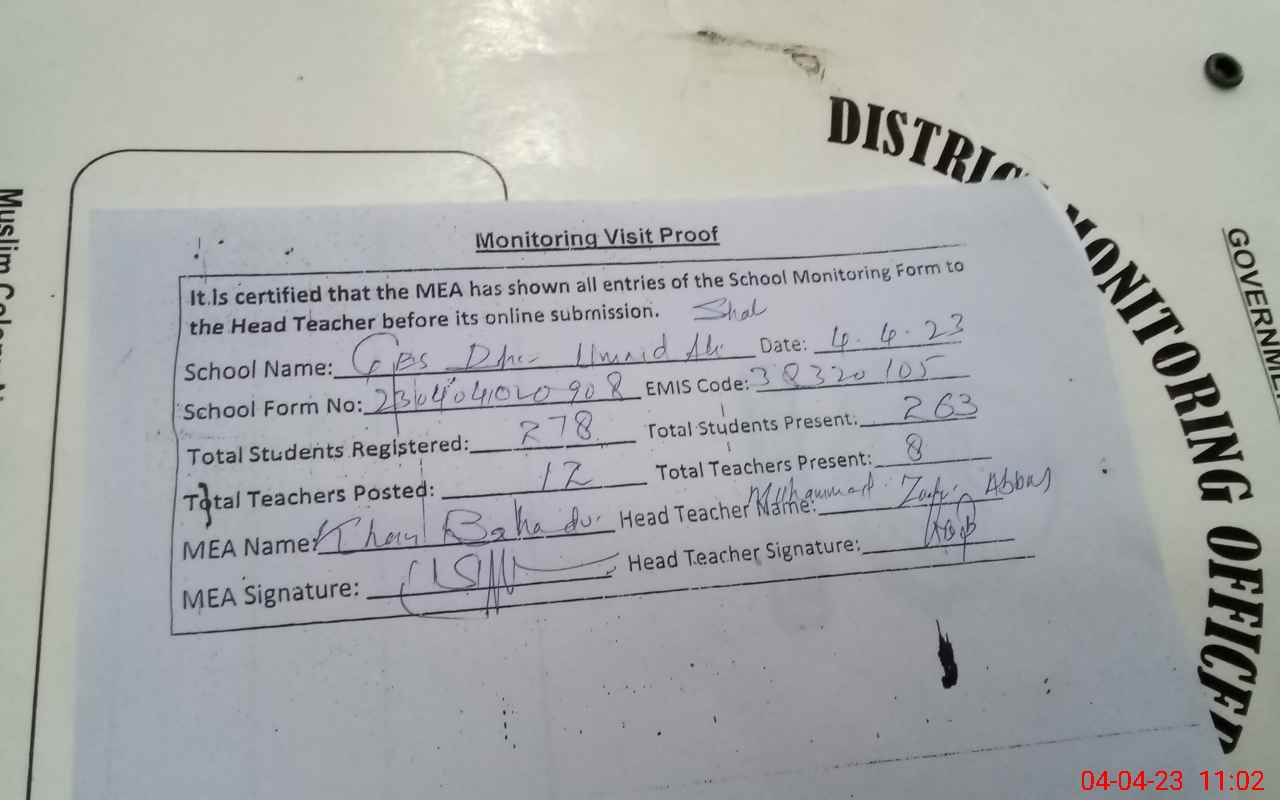 DISTRIC MONITORING OFFICER
GOVERNME
Muslim Colony
Monitoring Visit Proof
It.Is certified that the MEA has shown all entries of the School Monitoring Form to
the Head Teacher before its online submission.
School Name: GBS Umaid Ali Date: 4.4.23
School Form No: 23404020908 EMIS Code: 38320105
Total Students Registered: 278 Total Students Present: 263
Total Teachers Posted: 12 Total Teachers Present: 8
MEA Name: Khan Bahadur Head Teacher Name: Muhammad Abbas
MEA Signature: Head Teacher Signature:
04-04-23 11:02